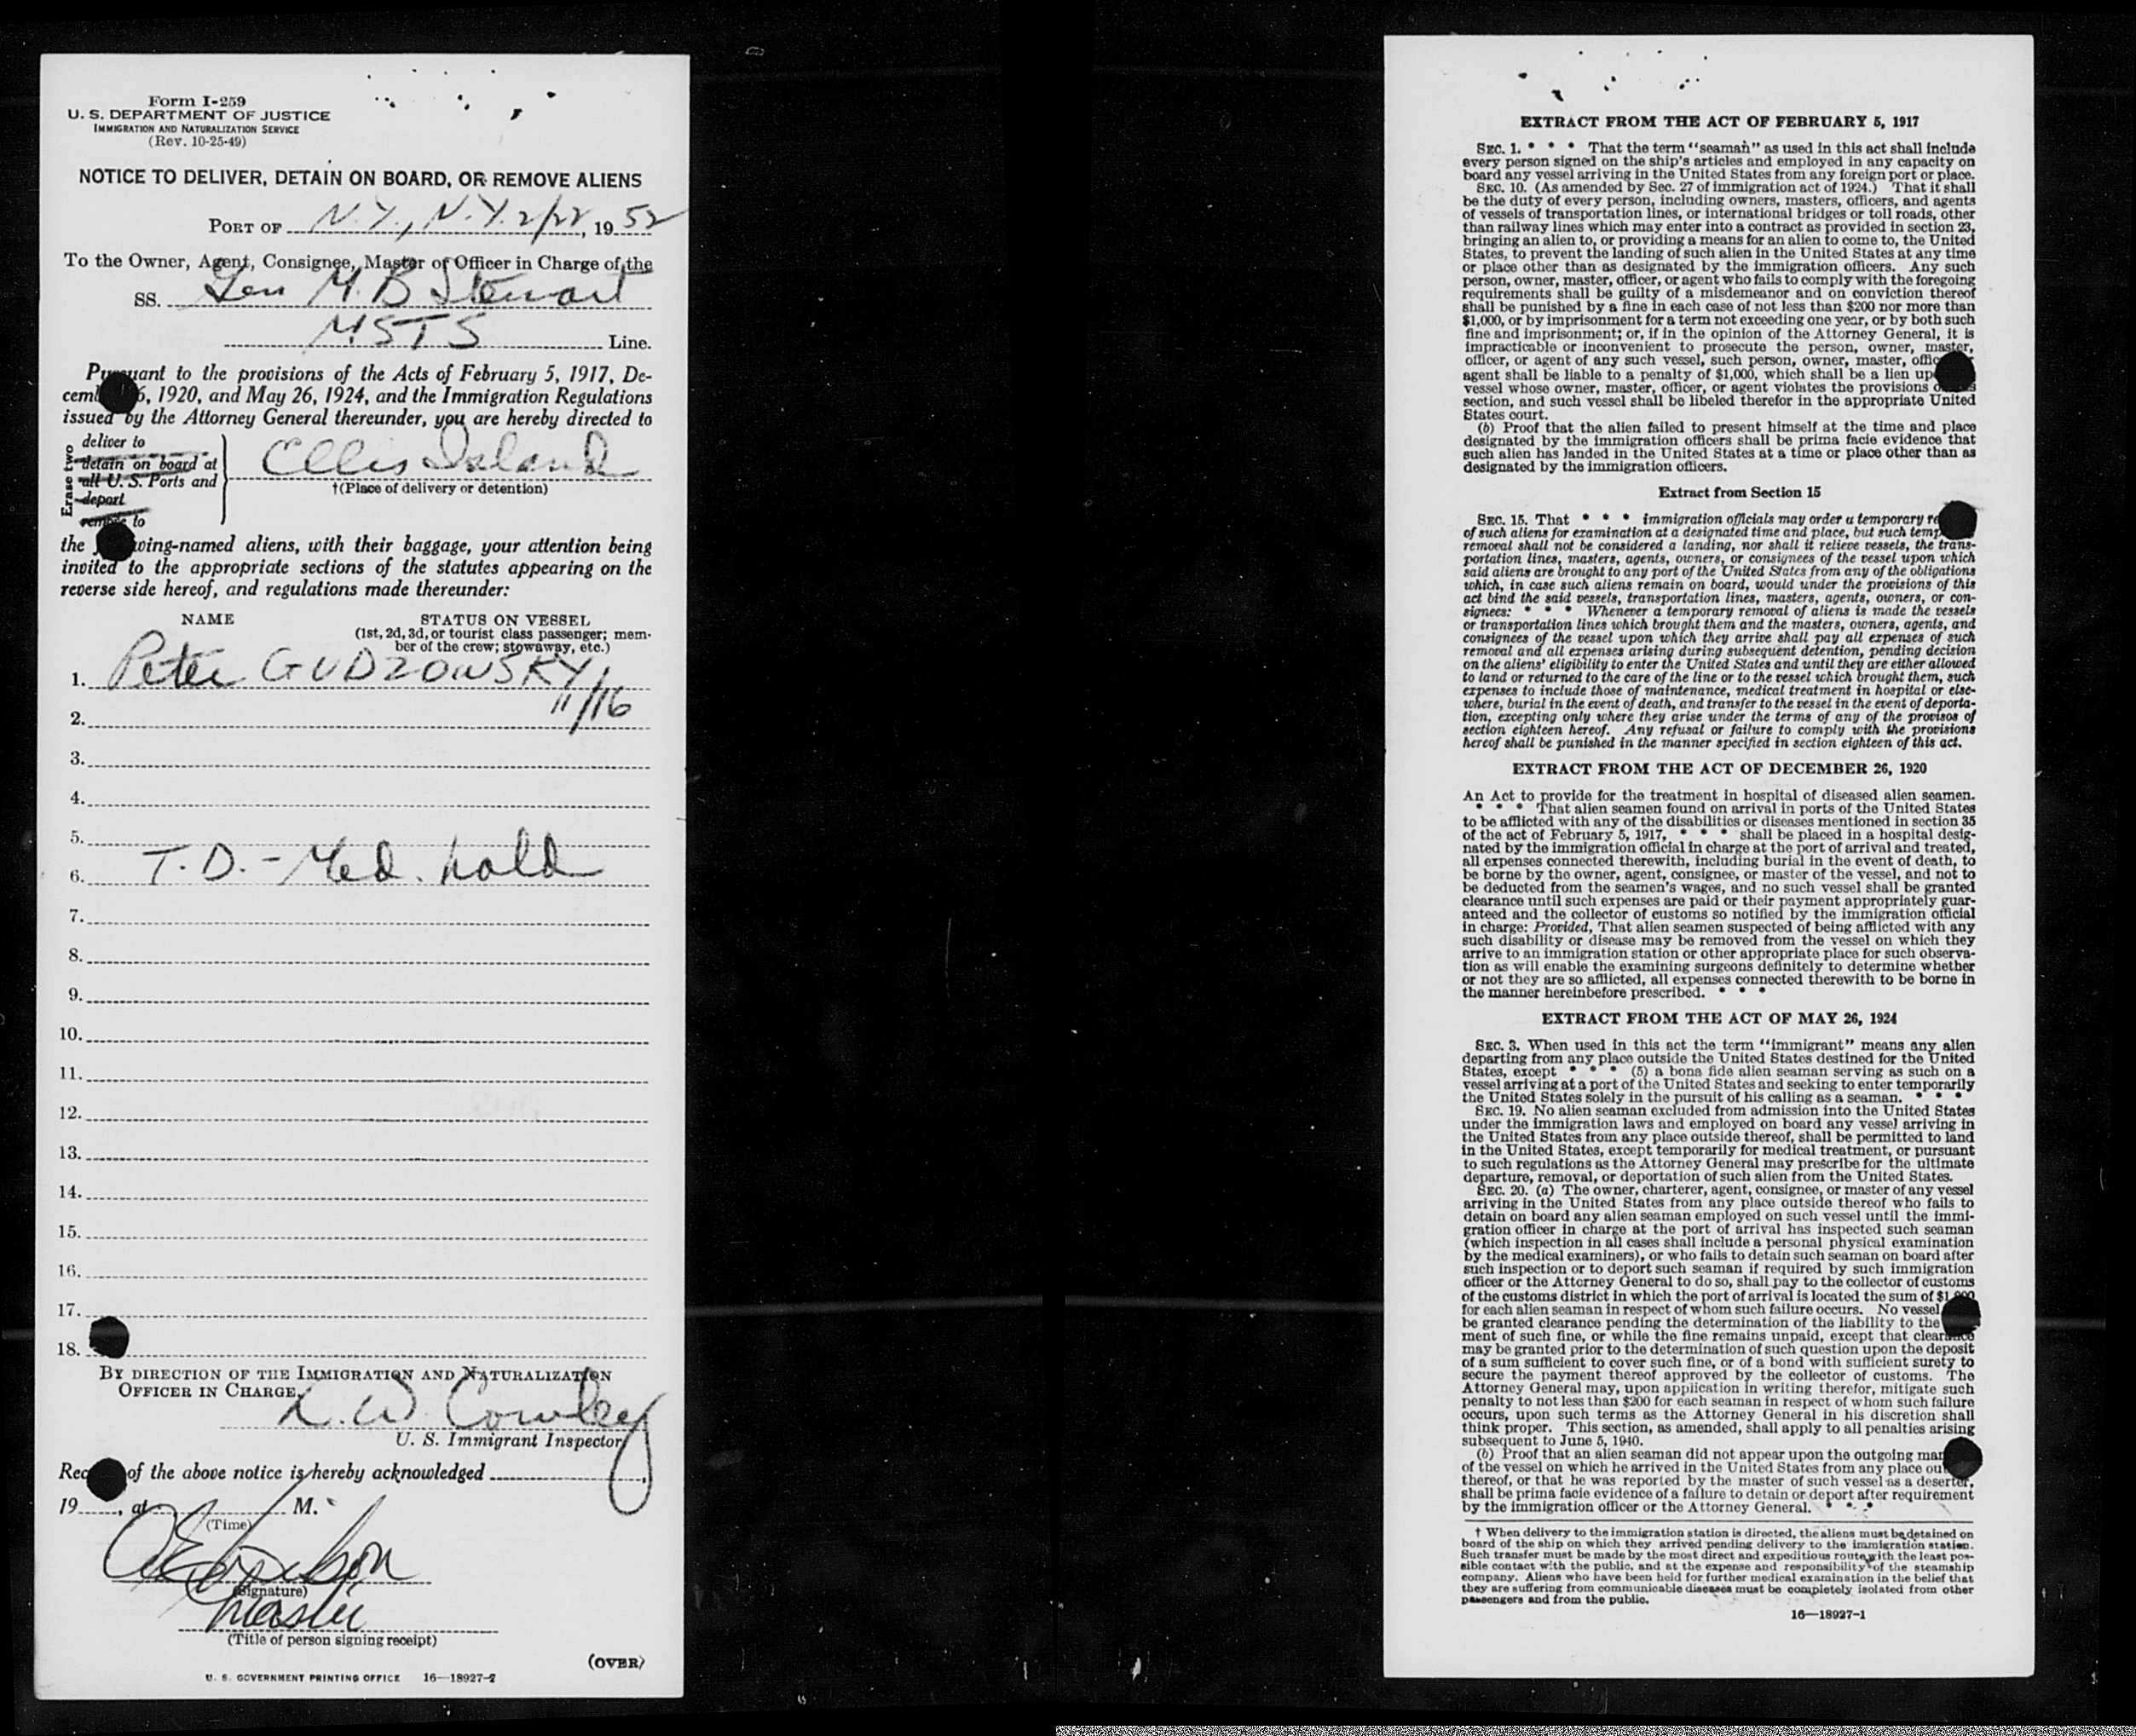 Form I-259
U. S. DEPARTMENT OF JUSTICE
IMMIGRATION AND NATURALIZATION SERVICE
(Rev. 10-25-49)
NOTICE TO DELIVER, DETAIN ON BOARD, OR REMOVE ALIENS
PORT OF N.Y., N.Y. 2/22, 1952
To the Owner, Agent, Consignee, Master or Officer in Charge of the
SS. Gen M. B Stewart
MSTS Line.
Pursuant to the provisions of the Acts of February 5, 1917, De-
cemb 6, 1920, and May 26, 1924, and the Immigration Regulations
issued by the Attorney General thereunder, you are hereby directed to
Erase two
deliver to
detain on board at
all U. S. Ports and
deport
remove to
Ellis Island
†(Place of delivery or detention)
the wing-named aliens, with their baggage, your attention being
invited to the appropriate sections of the statutes appearing on the
reverse side hereof, and regulations made thereunder:
NAME STATUS ON VESSEL
(1st, 2d, 3d, or tourist class passenger; mem-
ber of the crew; stowaway, etc.)
1. Peter GUDZOWSKY
2. 11/16
3.
4.
5.
6. T.D. - Med. hold
7.
8.
9.
10.
11.
12.
13.
14.
15.
16.
17.
18.
BY DIRECTION OF THE IMMIGRATION AND NATURALIZATION
OFFICER IN CHARGE,
L. W. Cowley
U. S. Immigrant Inspector
Rec of the above notice is hereby acknowledged
19, at M.
(Time)
(Signature)
Master
(Title of person signing receipt)
(OVER)
U. S. GOVERNMENT PRINTING OFFICE 16—18927-2
EXTRACT FROM THE ACT OF FEBRUARY 5, 1917
SEC. 1. * * * That the term "seaman" as used in this act shall include
every person signed on the ship's articles and employed in any capacity on
board any vessel arriving in the United States from any foreign port or place.
SEC. 10. (As amended by Sec. 27 of immigration act of 1924.) That it shall
be the duty of every person, including owners, masters, officers, and agents
of vessels of transportation lines, or international bridges or toll roads, other
than railway lines which may enter into a contract as provided in section 23,
bringing an alien to, or providing a means for an alien to come to, the United
States, to prevent the landing of such alien in the United States at any time
or place other than as designated by the immigration officers. Any such
person, owner, master, officer, or agent who fails to comply with the foregoing
requirements shall be guilty of a misdemeanor and on conviction thereof
shall be punished by a fine in each case of not less than $200 nor more than
$1,000, or by imprisonment for a term not exceeding one year, or by both such
fine and imprisonment; or, if in the opinion of the Attorney General, it is
impracticable or inconvenient to prosecute the person, owner, master,
officer, or agent of any such vessel, such person, owner, master, offic
agent shall be liable to a penalty of $1,000, which shall be a lien up
vessel whose owner, master, officer, or agent violates the provisions
section, and such vessel shall be libeled therefor in the appropriate United
States court.
(b) Proof that the alien failed to present himself at the time and place
designated by the immigration officers shall be prima facie evidence that
such alien has landed in the United States at a time or place other than as
designated by the immigration officers.
Extract from Section 15
SEC. 15. That * * * immigration officials may order a temporary re
of such aliens for examination at a designated time and place, but such temp
removal shall not be considered a landing, nor shall it relieve vessels, the trans-
portation lines, masters, agents, owners, or consignees of the vessel upon which
said aliens are brought to any port of the United States from any of the obligations
which, in case such aliens remain on board, would under the provisions of this
act bind the said vessels, transportation lines, masters, agents, owners, or con-
signees: * * * Whenever a temporary removal of aliens is made the vessels
or transportation lines which brought them and the masters, owners, agents, and
consignees of the vessel upon which they arrive shall pay all expenses of such
removal and all expenses arising during subsequent detention, pending decision
on the aliens' eligibility to enter the United States and until they are either allowed
to land or returned to the care of the line or to the vessel which brought them, such
expenses to include those of maintenance, medical treatment in hospital or else-
where, burial in the event of death, and transfer to the vessel in the event of deporta-
tion, excepting only where they arise under the terms of any of the provisos of
section eighteen hereof. Any refusal or failure to comply with the provisions
hereof shall be punished in the manner specified in section eighteen of this act.
EXTRACT FROM THE ACT OF DECEMBER 26, 1920
An Act to provide for the treatment in hospital of diseased alien seamen.
* * * That alien seamen found on arrival in ports of the United States
to be afflicted with any of the disabilities or diseases mentioned in section 35
of the act of February 5, 1917, * * * shall be placed in a hospital desig-
nated by the immigration official in charge at the port of arrival and treated,
all expenses connected therewith, including burial in the event of death, to
be borne by the owner, agent, consignee, or master of the vessel, and not to
be deducted from the seamen's wages, and no such vessel shall be granted
clearance until such expenses are paid or their payment appropriately guar-
anteed and the collector of customs so notified by the immigration official
in charge: Provided, That alien seamen suspected of being afflicted with any
such disability or disease may be removed from the vessel on which they
arrive to an immigration station or other appropriate place for such observa-
tion as will enable the examining surgeons definitely to determine whether
or not they are so afflicted, all expenses connected therewith to be borne in
the manner hereinbefore prescribed. * * *
EXTRACT FROM THE ACT OF MAY 26, 1924
SEC. 3. When used in this act the term "immigrant" means any alien
departing from any place outside the United States destined for the United
States, except * * * (5) a bona fide alien seaman serving as such on a
vessel arriving at a port of the United States and seeking to enter temporarily
the United States solely in the pursuit of his calling as a seaman. * * *
SEC. 19. No alien seaman excluded from admission into the United States
under the immigration laws and employed on board any vessel arriving in
the United States from any place outside thereof, shall be permitted to land
in the United States, except temporarily for medical treatment, or pursuant
to such regulations as the Attorney General may prescribe for the ultimate
departure, removal, or deportation of such alien from the United States.
SEC. 20. (a) The owner, charterer, agent, consignee, or master of any vessel
arriving in the United States from any place outside thereof who fails to
detain on board any alien seaman employed on such vessel until the immi-
gration officer in charge at the port of arrival has inspected such seaman
(which inspection in all cases shall include a personal physical examination
by the medical examiners), or who fails to detain such seaman on board after
such inspection or to deport such seaman if required by such immigration
officer or the Attorney General to do so, shall pay to the collector of customs
of the customs district in which the port of arrival is located the sum of $1,000
for each alien seaman in respect of whom such failure occurs. No vessel
be granted clearance pending the determination of the liability to the
ment of such fine, or while the fine remains unpaid, except that clearance
may be granted prior to the determination of such question upon the deposit
of a sum sufficient to cover such fine, or of a bond with sufficient surety to
secure the payment thereof approved by the collector of customs. The
Attorney General may, upon application in writing therefor, mitigate such
penalty to not less than $200 for each seaman in respect of whom such failure
occurs, upon such terms as the Attorney General in his discretion shall
think proper. This section, as amended, shall apply to all penalties arising
subsequent to June 5, 1940.
(b) Proof that an alien seaman did not appear upon the outgoing man
of the vessel on which he arrived in the United States from any place out
thereof, or that he was reported by the master of such vessel as a deserter,
shall be prima facie evidence of a failure to detain or deport after requirement
by the immigration officer or the Attorney General. * * *
† When delivery to the immigration station is directed, the aliens must be detained on
board of the ship on which they arrived pending delivery to the immigration station.
Such transfer must be made by the most direct and expeditious route with the least pos-
sible contact with the public, and at the expense and responsibility of the steamship
company. Aliens who have been held for further medical examination in the belief that
they are suffering from communicable diseases must be completely isolated from other
passengers and from the public.
16—18927-1